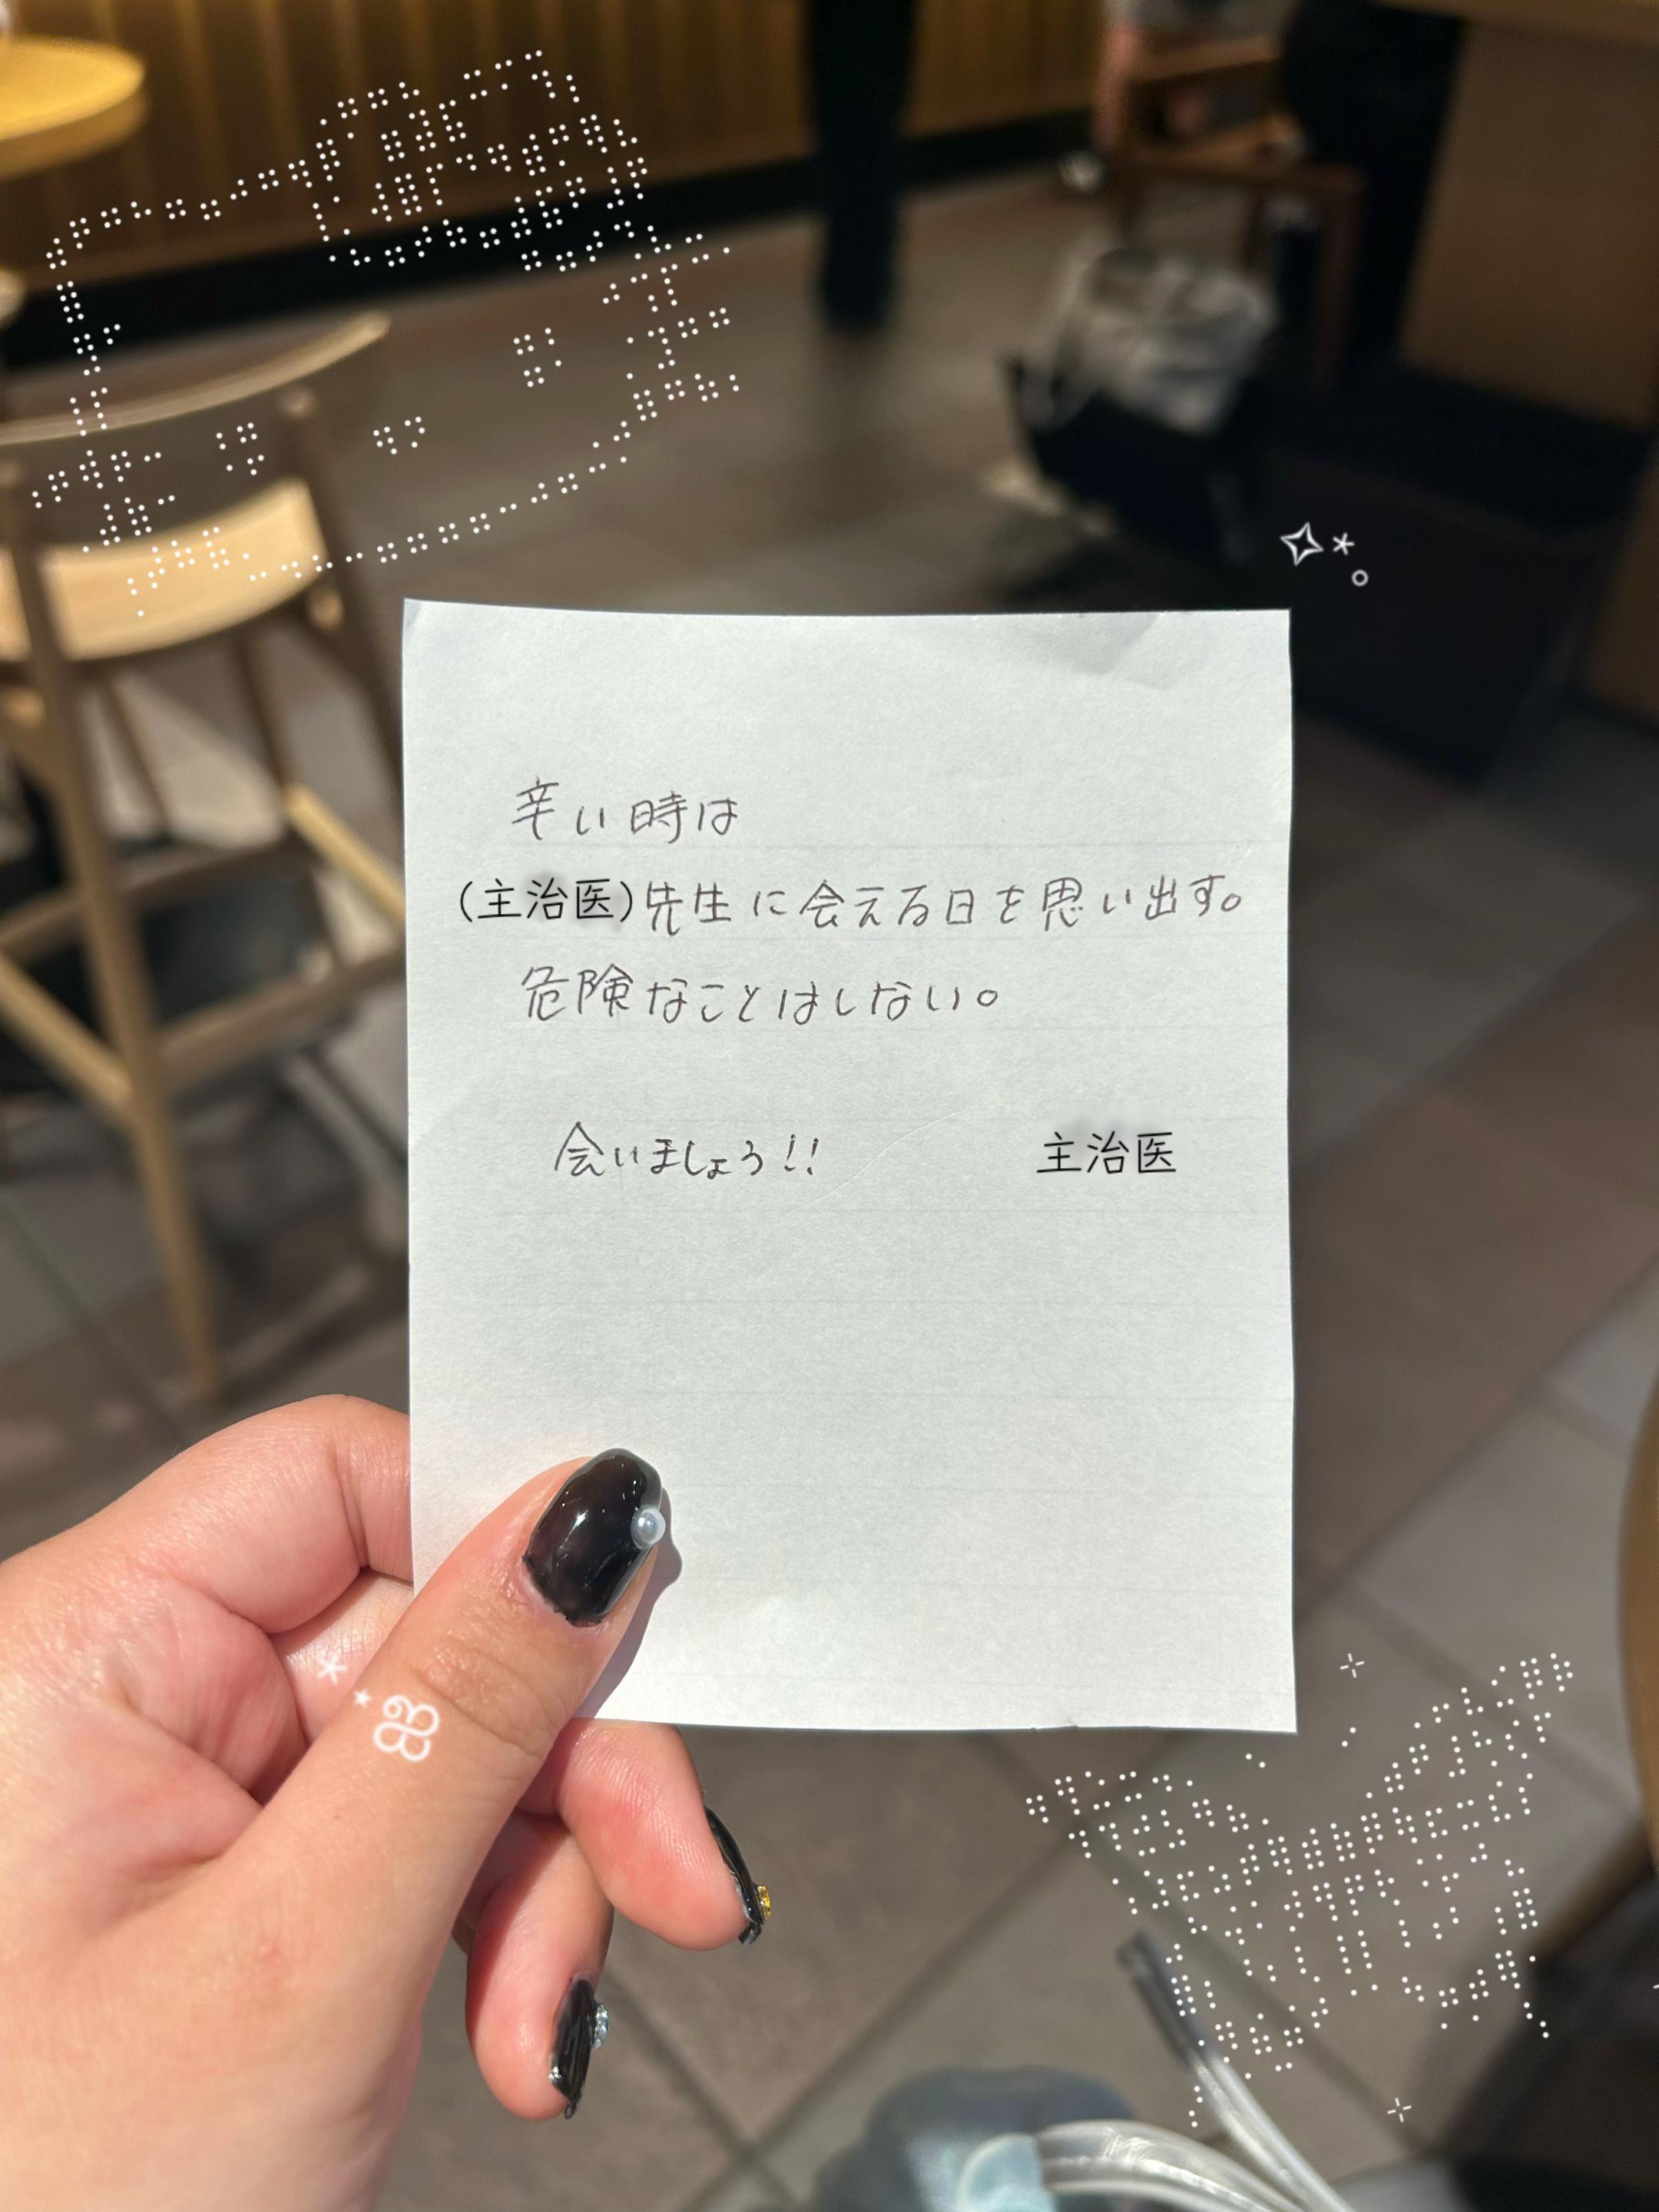 辛い時は
(主治医)先生に会える日を思い出す。
危険なことはしない。
会いましょう!! 主治医